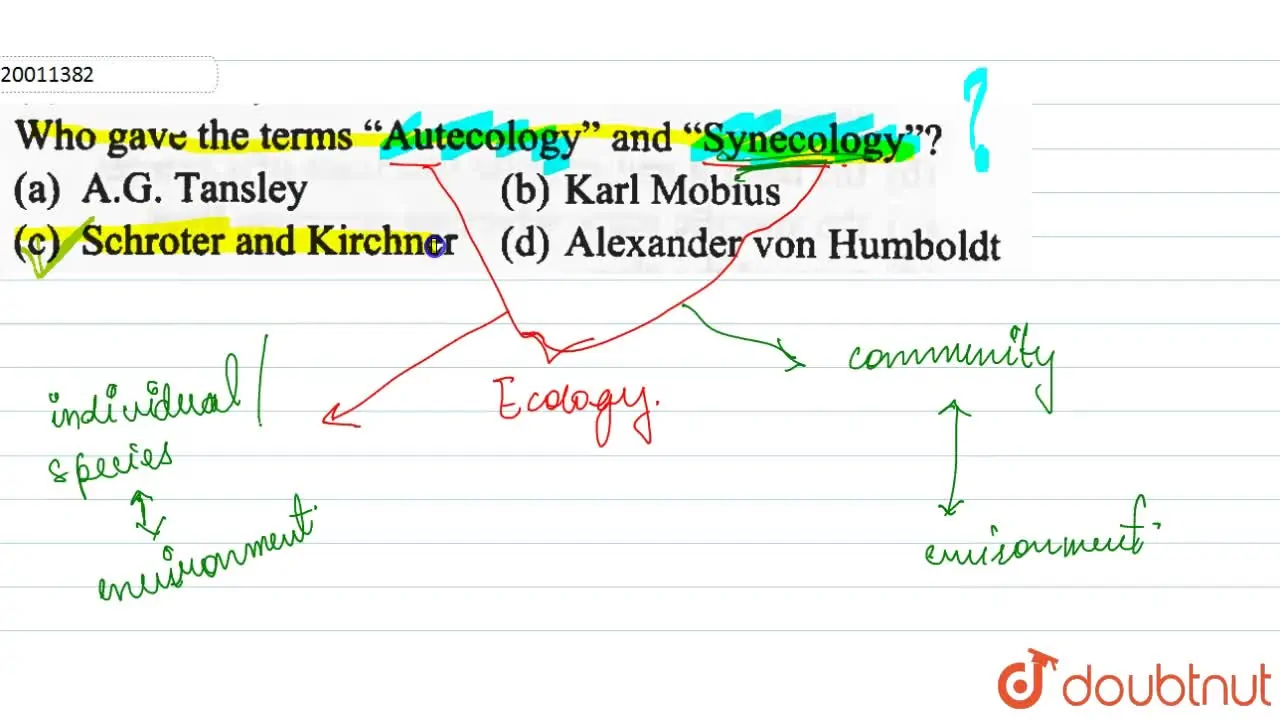 20011382
Who gave the terms “Autecology” and “Synecology”? ?
(a) A.G. Tansley (b) Karl Mobius
(c) Schroter and Kirchner (d) Alexander von Humboldt
individual/
species
environment.
Ecology.
community
environment
doubtnut